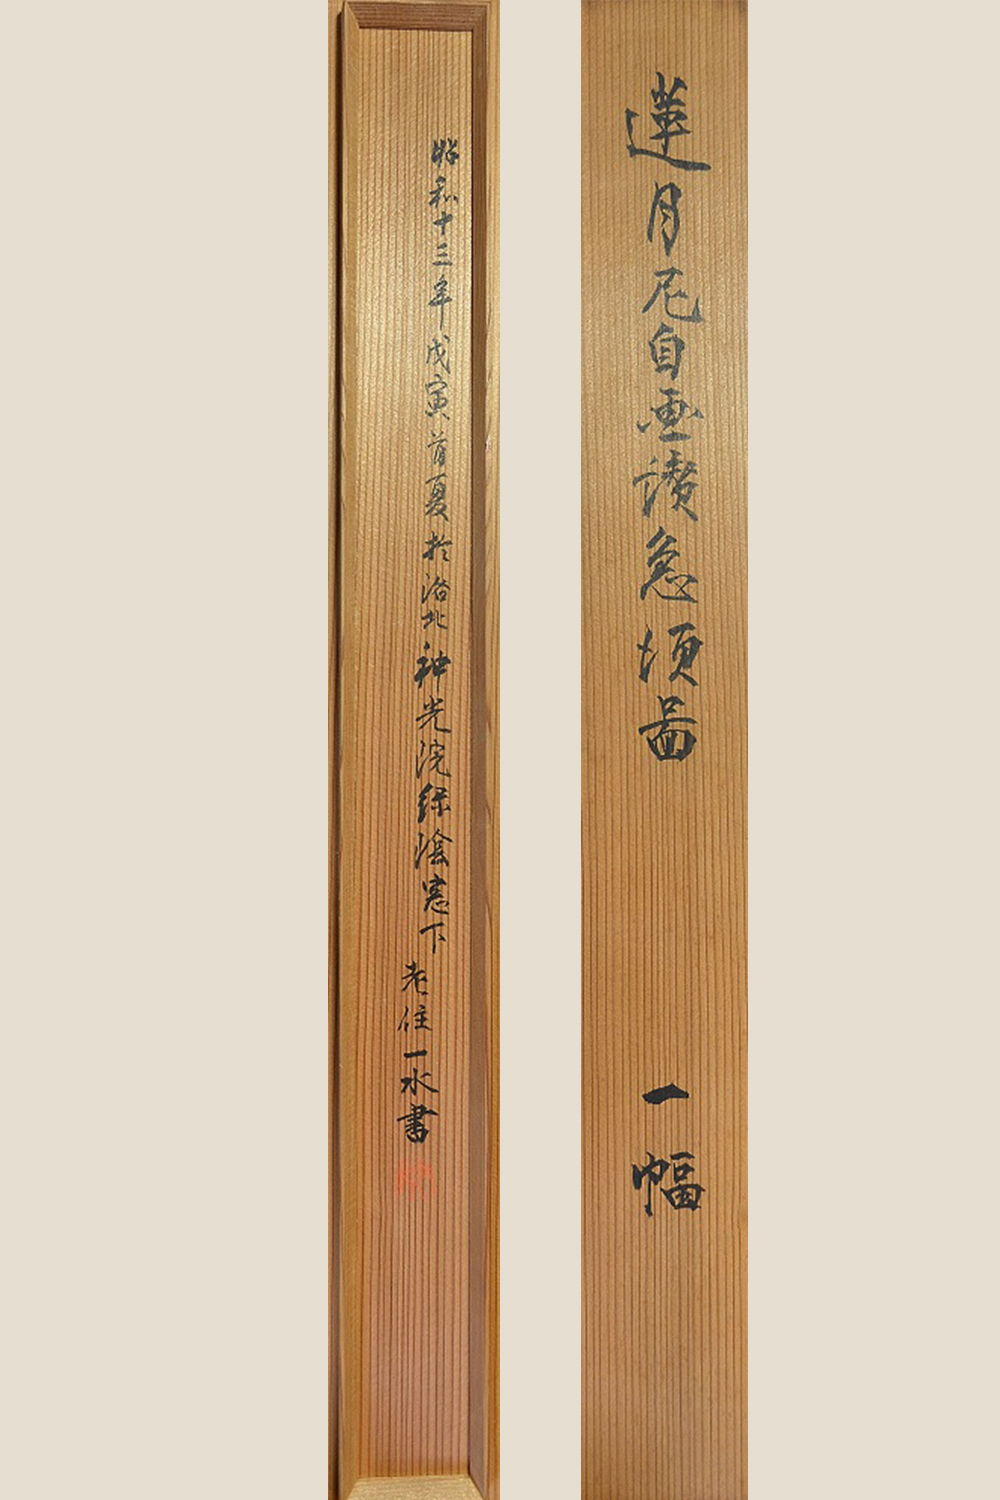 蓮月尼自画讃急須図
一幅
昭和十三年戊寅首夏於洛北神光院緑陰窓下
老住一水書